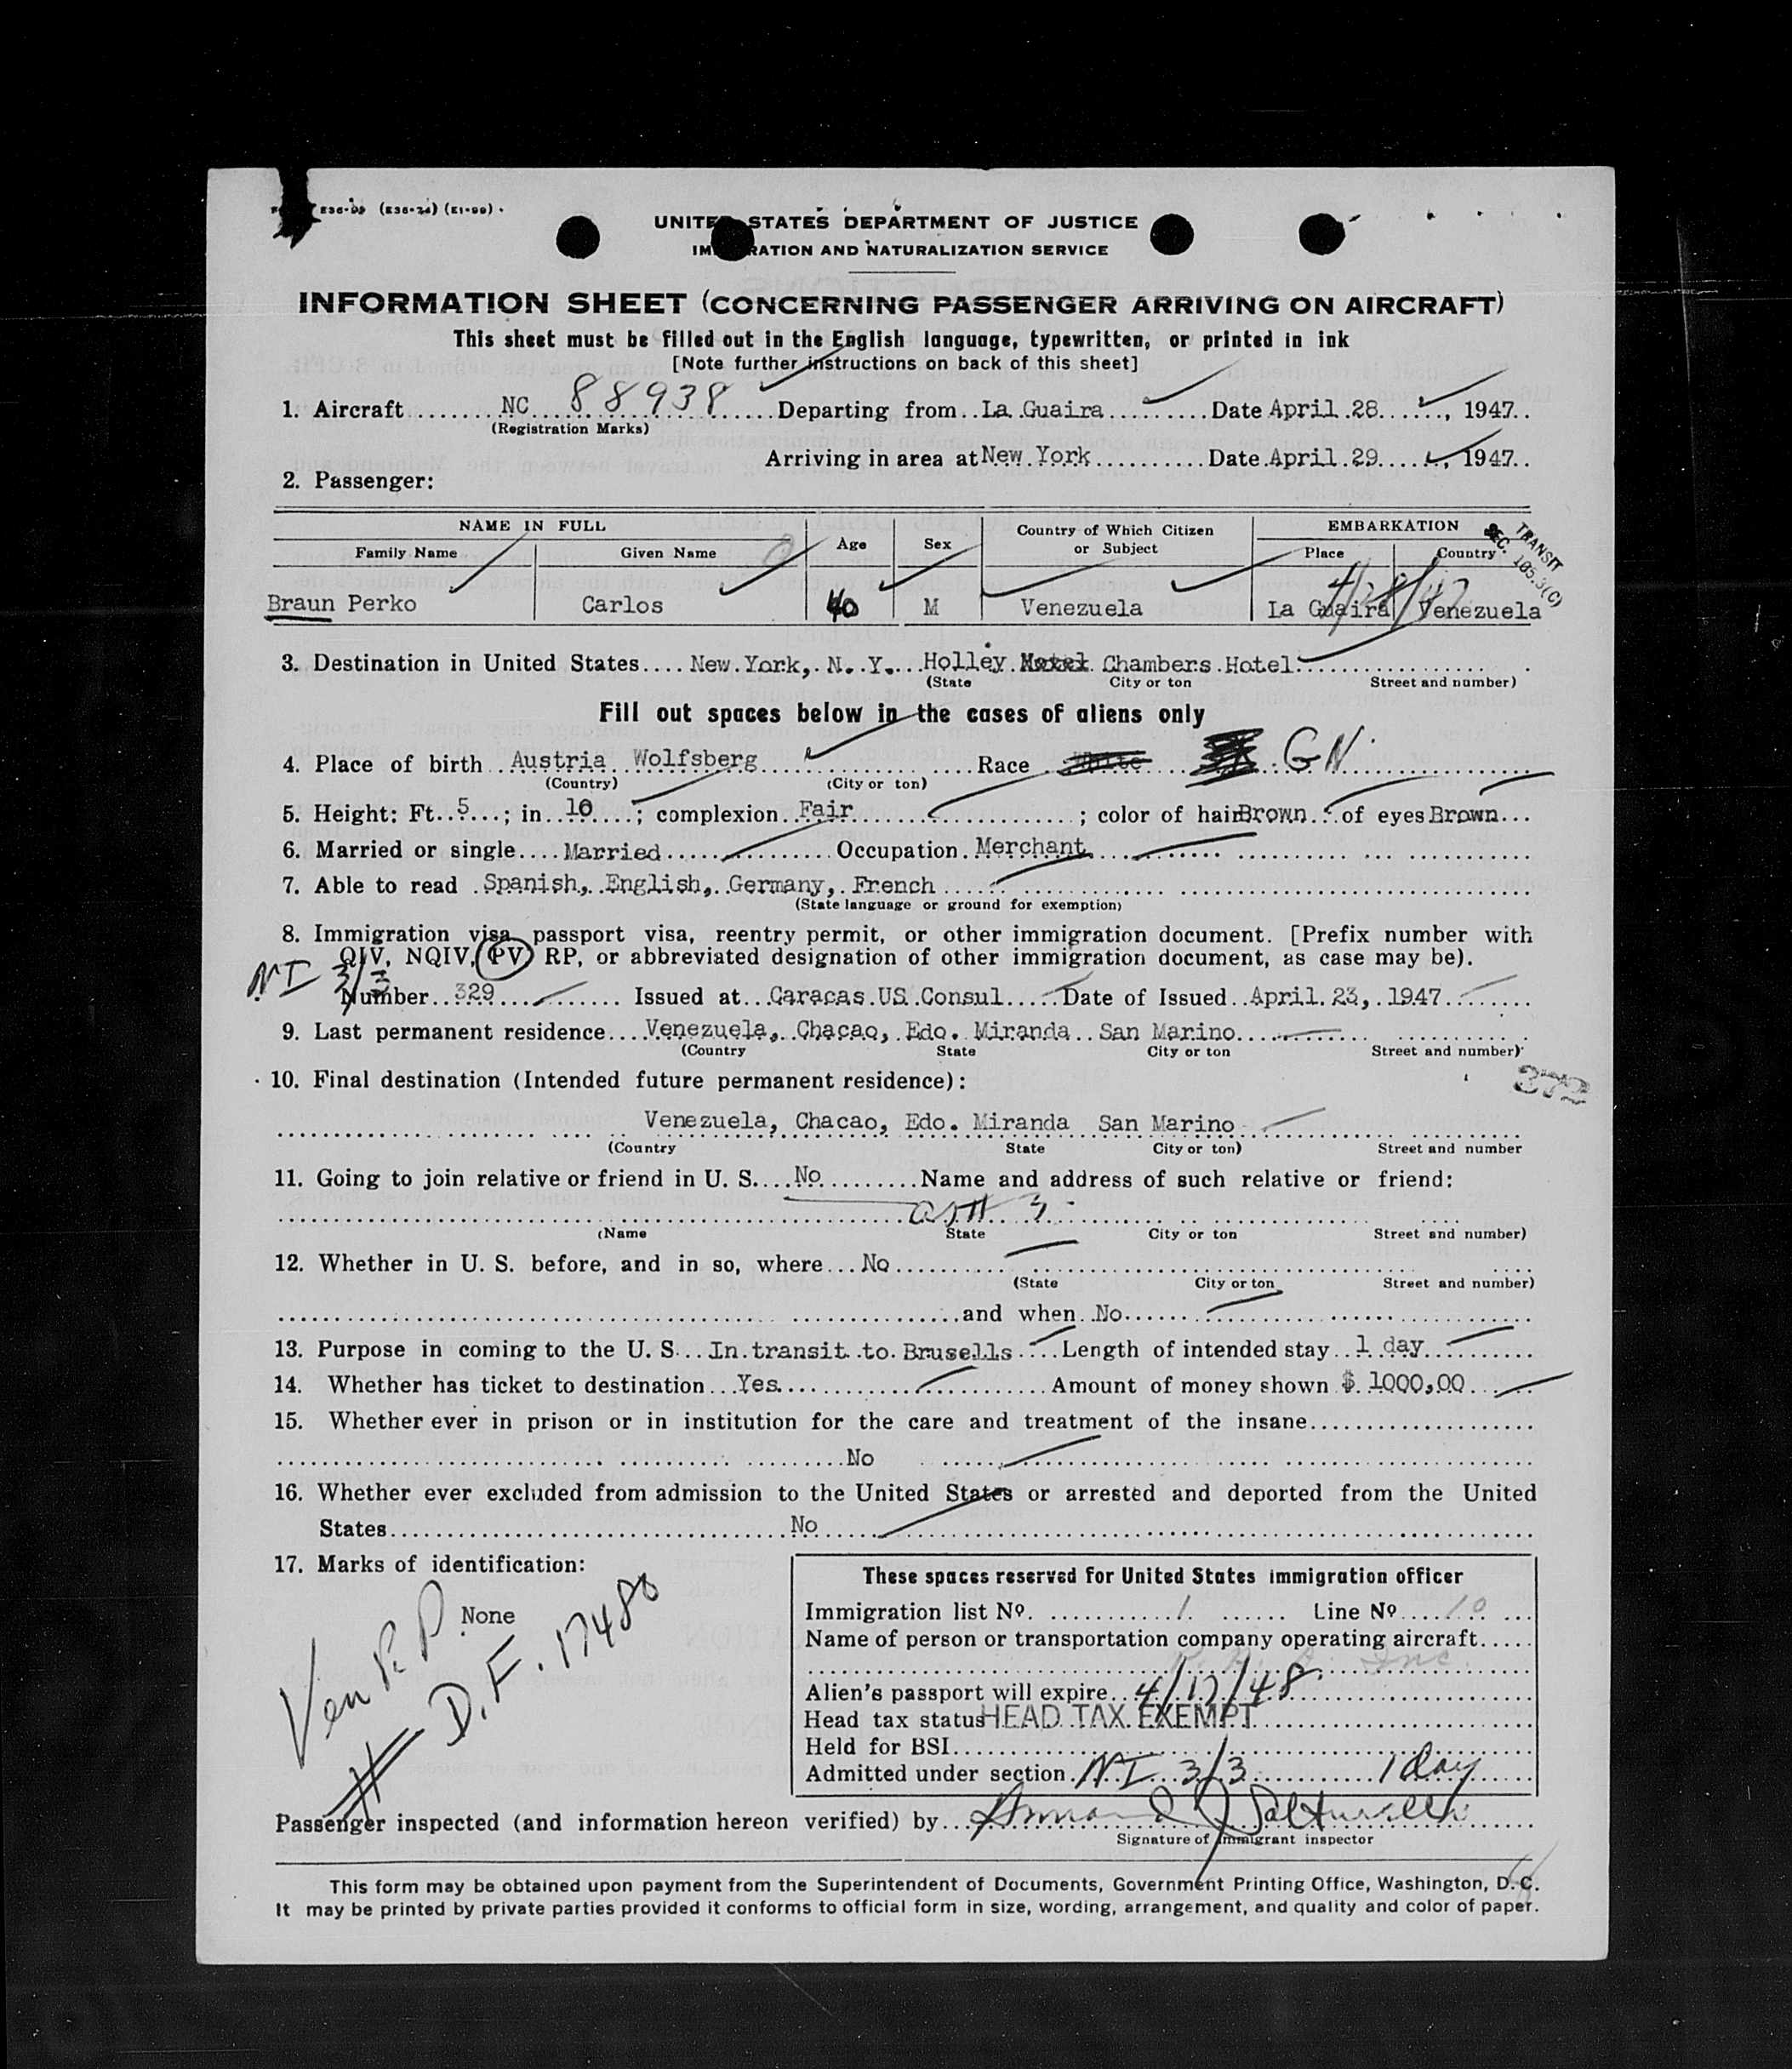 E36-99 (E36-24) (E1-99)
UNITED STATES DEPARTMENT OF JUSTICE
IMMIGRATION AND NATURALIZATION SERVICE
INFORMATION SHEET (CONCERNING PASSENGER ARRIVING ON AIRCRAFT)
This sheet must be filled out in the English language, typewritten, or printed in ink
[Note further instructions on back of this sheet]
1. Aircraft NC 88938 Departing from La Guaira Date April 28, 1947
(Registration Marks)
Arriving in area at New York Date April 29, 1947
2. Passenger:
NAME IN FULL Age Sex Country of Which Citizen or Subject EMBARKATION
Family Name Given Name Place Country
TRANSIT
SEC. 105.3(C)
4/28/47
Braun Perko Carlos 40 M Venezuela La Guaira Venezuela
3. Destination in United States New York, N. Y. Holley Hotel Chambers Hotel
(State City or ton Street and number)
Fill out spaces below in the cases of aliens only
4. Place of birth Austria Wolfsberg Race White GN
(Country) (City or ton)
5. Height: Ft. 5; in. 10; complexion Fair; color of hair Brown of eyes Brown
6. Married or single Married Occupation Merchant
7. Able to read Spanish, English, Germany, French
(State language or ground for exemption)
8. Immigration visa, passport visa, reentry permit, or other immigration document. [Prefix number with
QIV, NQIV, PV, RP, or abbreviated designation of other immigration document, as case may be).
NI 3/3
Number 329 Issued at Caracas US Consul Date of Issued April 23, 1947
9. Last permanent residence Venezuela, Chacao, Edo. Miranda San Marino
(Country State City or ton Street and number)
10. Final destination (Intended future permanent residence):
372
Venezuela, Chacao, Edo. Miranda San Marino
(Country State City or ton) Street and number
11. Going to join relative or friend in U. S. No Name and address of such relative or friend:
(Name State City or ton Street and number)
12. Whether in U. S. before, and in so, where No
(State City or ton Street and number)
and when No
13. Purpose in coming to the U. S. In transit to Brusells Length of intended stay 1 day
14. Whether has ticket to destination Yes Amount of money shown $ 1000,00
15. Whether ever in prison or in institution for the care and treatment of the insane
No
16. Whether ever excluded from admission to the United States or arrested and deported from the United
States No
17. Marks of identification:
None
Ven P. P.
# D.F. 17480
These spaces reserved for United States immigration officer
Immigration list No. 1 Line No 10
Name of person or transportation company operating aircraft
Inc.
Alien's passport will expire 4/17/48
Head tax status HEAD TAX EXEMPT
Held for BSI
Admitted under section NI 3/3 1 day
Passenger inspected (and information hereon verified) by
Signature of immigrant inspector
This form may be obtained upon payment from the Superintendent of Documents, Government Printing Office, Washington, D. C.
It may be printed by private parties provided it conforms to official form in size, wording, arrangement, and quality and color of paper.